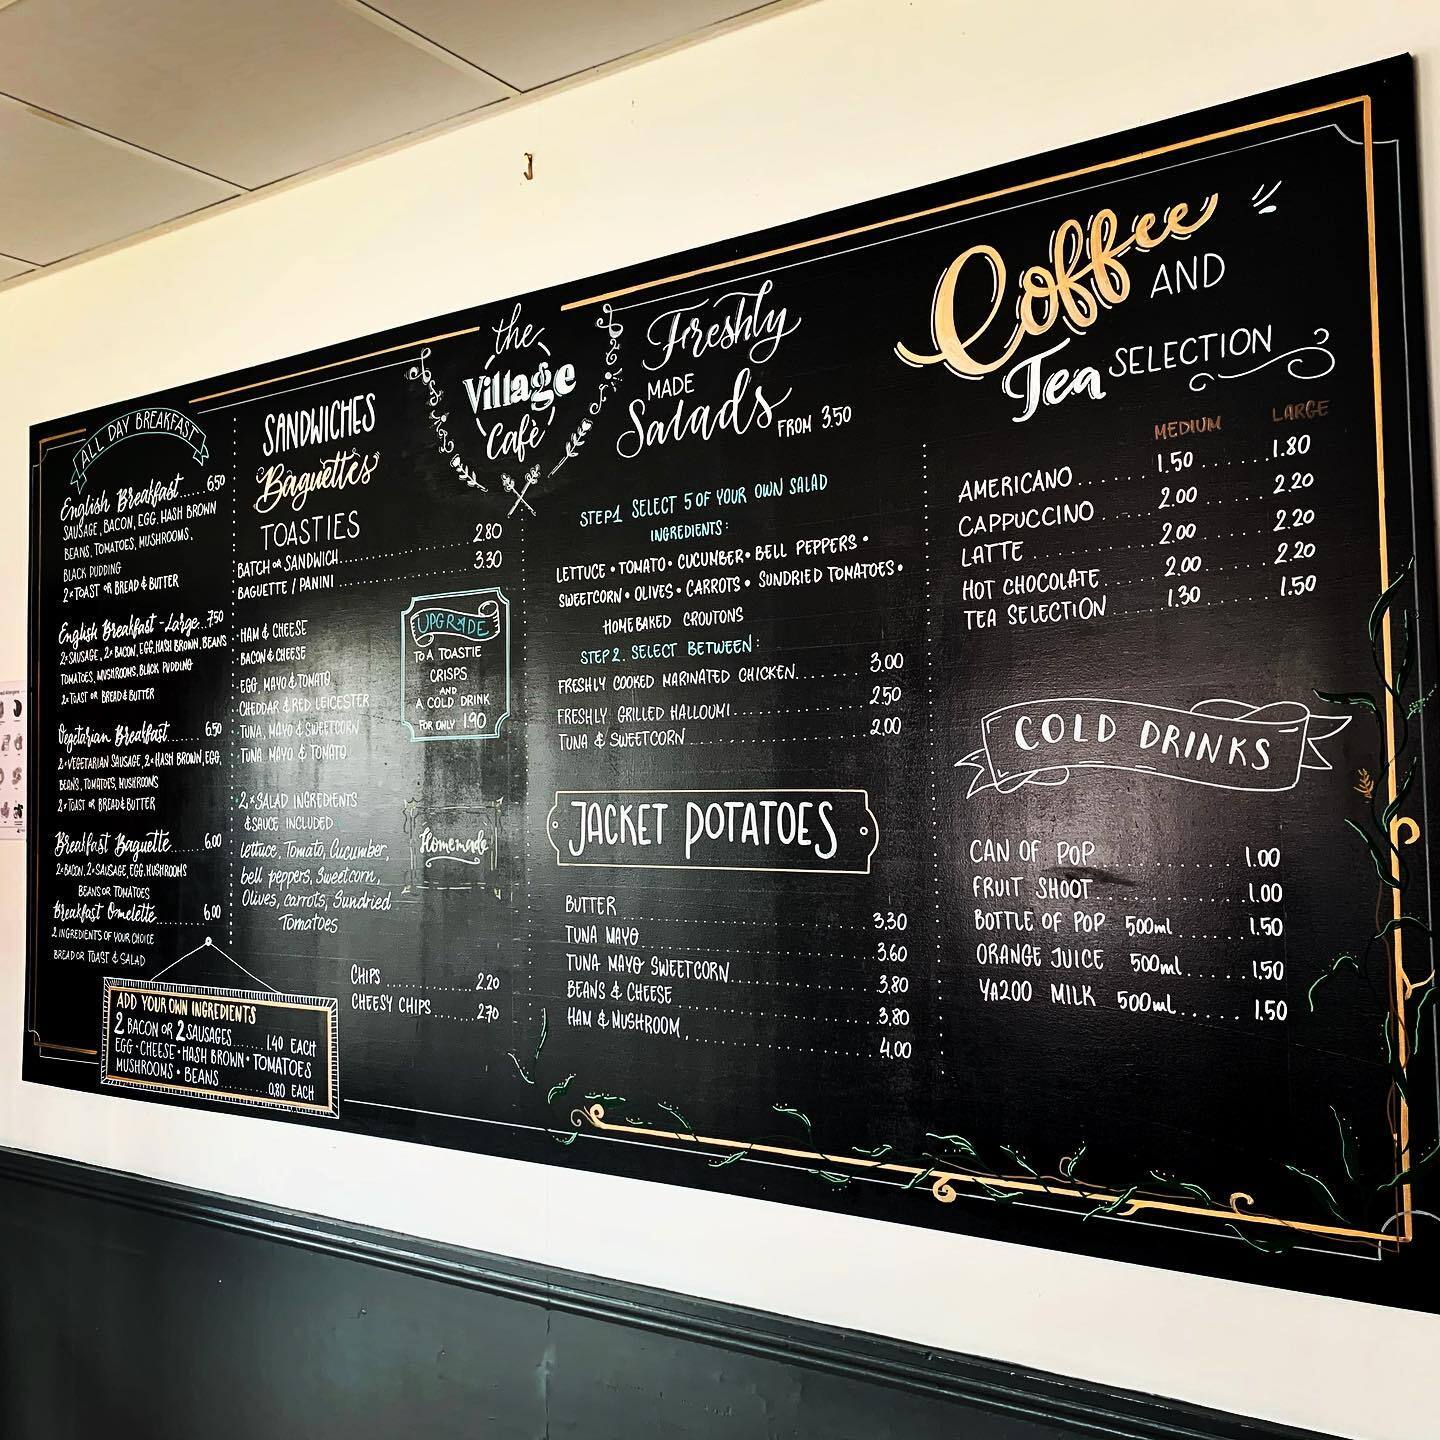 ALL DAY BREAKFAST
English Breakfast...... 6.50
SAUSAGE, BACON, EGG, HASH BROWN
BEANS, TOMATOES, MUSHROOMS,
BLACK PUDDING
2x TOAST OR BREAD & BUTTER
English Breakfast - Large.. 7.50
2x SAUSAGE, 2x BACON, EGG, HASH BROWN, BEANS
TOMATOES, MUSHROOMS, BLACK PUDDING
2x TOAST OR BREAD & BUTTER
Vegetarian Breakfast......... 6.50
2x VEGETARIAN SAUSAGE, 2x HASH BROWN, EGG,
BEANS, TOMATOES, MUSHROOMS
2x TOAST OR BREAD & BUTTER
Breakfast Baguette......... 6.00
2x BACON, 2x SAUSAGE, EGG, MUSHROOMS
BEANS OR TOMATOES
Breakfast Omelette............ 6.00
2 INGREDIENTS OF YOUR CHOICE
BREAD OR TOAST & SALAD
ADD YOUR OWN INGREDIENTS
2 BACON OR 2 SAUSAGES........ 1.40 EACH
EGG • CHEESE • HASH BROWN • TOMATOES
MUSHROOMS • BEANS............ 0.80 EACH
SANDWICHES
Baguettes
TOASTIES
BATCH OR SANDWICH.................... 2.80
BAGUETTE / PANINI .................... 3.30
• HAM & CHEESE
• BACON & CHEESE
• EGG, MAYO & TOMATO
• CHEDDAR & RED LEICESTER
• TUNA, MAYO & SWEETCORN
• TUNA MAYO & TOMATO
• 2x SALAD INGREDIENTS
& SAUCE INCLUDED
Lettuce, Tomato, Cucumber,
bell peppers, Sweetcorn,
Olives, carrots, Sundried
Tomatoes
UPGRADE
TO A TOASTIE
CRISPS
AND
A COLD DRINK
FOR ONLY 1.90
Homemade
CHIPS ................ 2.20
CHEESY CHIPS........ 2.70
the
Village
Cafè
Freshly
MADE
Salads
FROM 3.50
STEP 1 SELECT 5 OF YOUR OWN SALAD
INGREDIENTS:
LETTUCE • TOMATO • CUCUMBER • BELL PEPPERS •
SWEETCORN • OLIVES • CARROTS • SUNDRIED TOMATOES •
HOMEBAKED CROUTONS
STEP 2. SELECT BETWEEN:
FRESHLY COOKED MARINATED CHICKEN.......... 3.00
FRESHLY GRILLED HALLOUMI.................... 2.50
TUNA & SWEETCORN.......................... 2.00
JACKET POTATOES
BUTTER .............................. 3.30
TUNA MAYO .......................... 3.60
TUNA MAYO SWEETCORN................ 3,80
BEANS & CHEESE ...................... 3,80
HAM & MUSHROOM, .................... 4.00
Coffee
AND
Tea SELECTION
MEDIUM LARGE
AMERICANO........ 1.50 ........ 1.80
CAPPUCCINO ...... 2.00 ........ 2.20
LATTE ............ 2.00 ........ 2.20
HOT CHOCOLATE.... 2.00 ........ 2.20
TEA SELECTION .... 1.30 ........ 1.50
COLD DRINKS
CAN OF POP .............. 1.00
FRUIT SHOOT .............. 1.00
BOTTLE OF POP 500ml ........ 1.50
ORANGE JUICE 500ml........ 1.50
YAZOO MILK 500ml........ 1.50